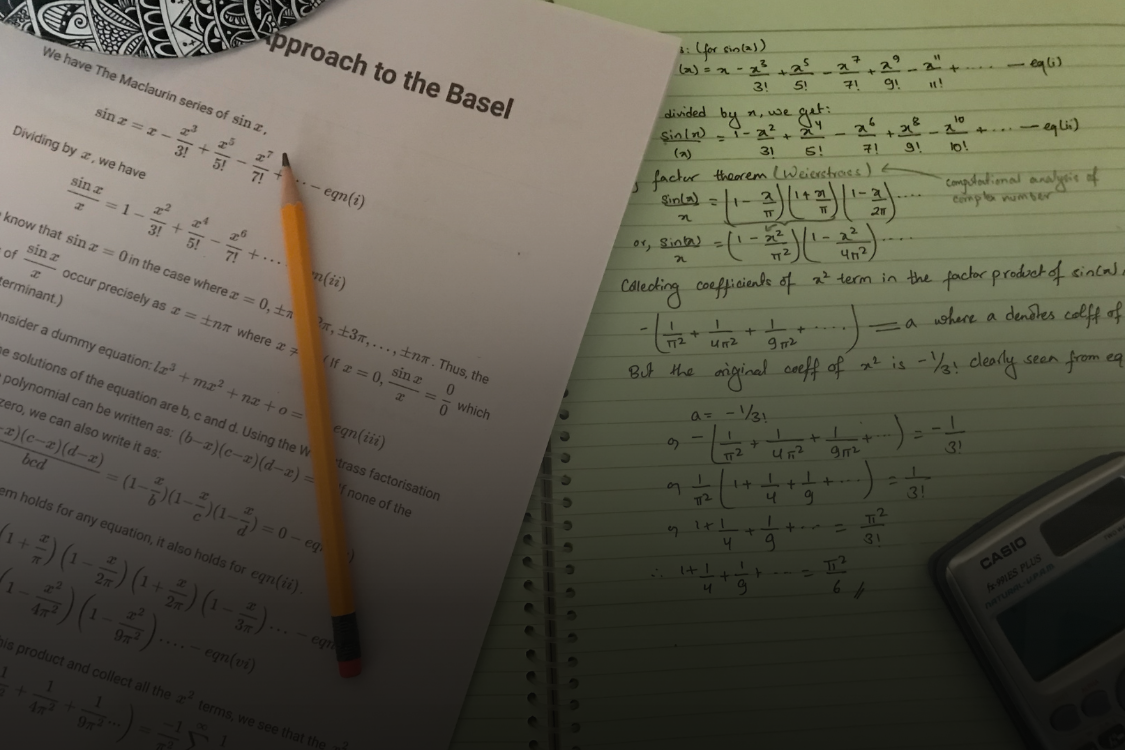 Approach to the Basel
We have The Maclaurin series of sin x,
sin x = x − x³/3! + x⁵/5! − x⁷/7! + ... − eqn(i)
Dividing by x, we have
sin x/x = 1 − x²/3! + x⁴/5! − x⁶/7! + ... eqn(ii)
know that sin x = 0 in the case where x = 0, ±π 2π, ±3π, ..., ±nπ. Thus, the
of sin x/x occur precisely as x = ±nπ where x ≠ (If x = 0, sin x/x = 0/0 which
terminant.)
nsider a dummy equation: lx³ + mx² + nx + o = eqn(iii)
e solutions of the equation are b, c and d. Using the W trass factorisation
polynomial can be written as: (b−x)(c−x)(d−x) = If none of the
zero, we can also write it as:
−x)(c−x)(d−x)/bcd = (1−x/b)(1−x/c)(1−x/d) = 0 − eq
em holds for any equation, it also holds for eqn(ii).
(1+x/π)(1−x/2π)(1+x/2π)(1−x/3π)... − eqn
(1−x²/4π²)(1−x²/9π²)..... − eqn(vi)
his product and collect all the x² terms, we see that the
+ 1/4π² + 1/9π² ...) = −1/π² ∑
: (for sin(x))
(x) = x − x³/3! + x⁵/5! − x⁷/7! + x⁹/9! − x¹¹/11! + ..... — eq(i)
divided by x, we get:
sin(x)/(x) = 1 − x²/3! + x⁴/5! − x⁶/7! + x⁸/9! − x¹⁰/10! + ... — eq(ii)
factor theorem (Weierstrass)
computational analysis of
complex number
sin(x)/x = (1 − x/π)(1 + x/π)(1 − x/2π)....
or, sin(x)/x = (1 − x²/π²)(1 − x²/4π²).....
Collecting coefficients of x² term in the factor product of sin(x)
−(1/π² + 1/4π² + 1/9π² + .....) = a where a denotes coeff of
But the original coeff of x² is −1/3! clearly seen from eq
a = −1/3!
or −(1/π² + 1/4π² + 1/9π² + ...) = −1/3!
or 1/π² (1 + 1/4 + 1/9 + ....) = 1/3!
or 1 + 1/4 + 1/9 + ... = π²/3!
∴ 1 + 1/4 + 1/9 + .... = π²/6 //
CASIO
fx-991ES PLUS
NATURAL-V.P.A.M.